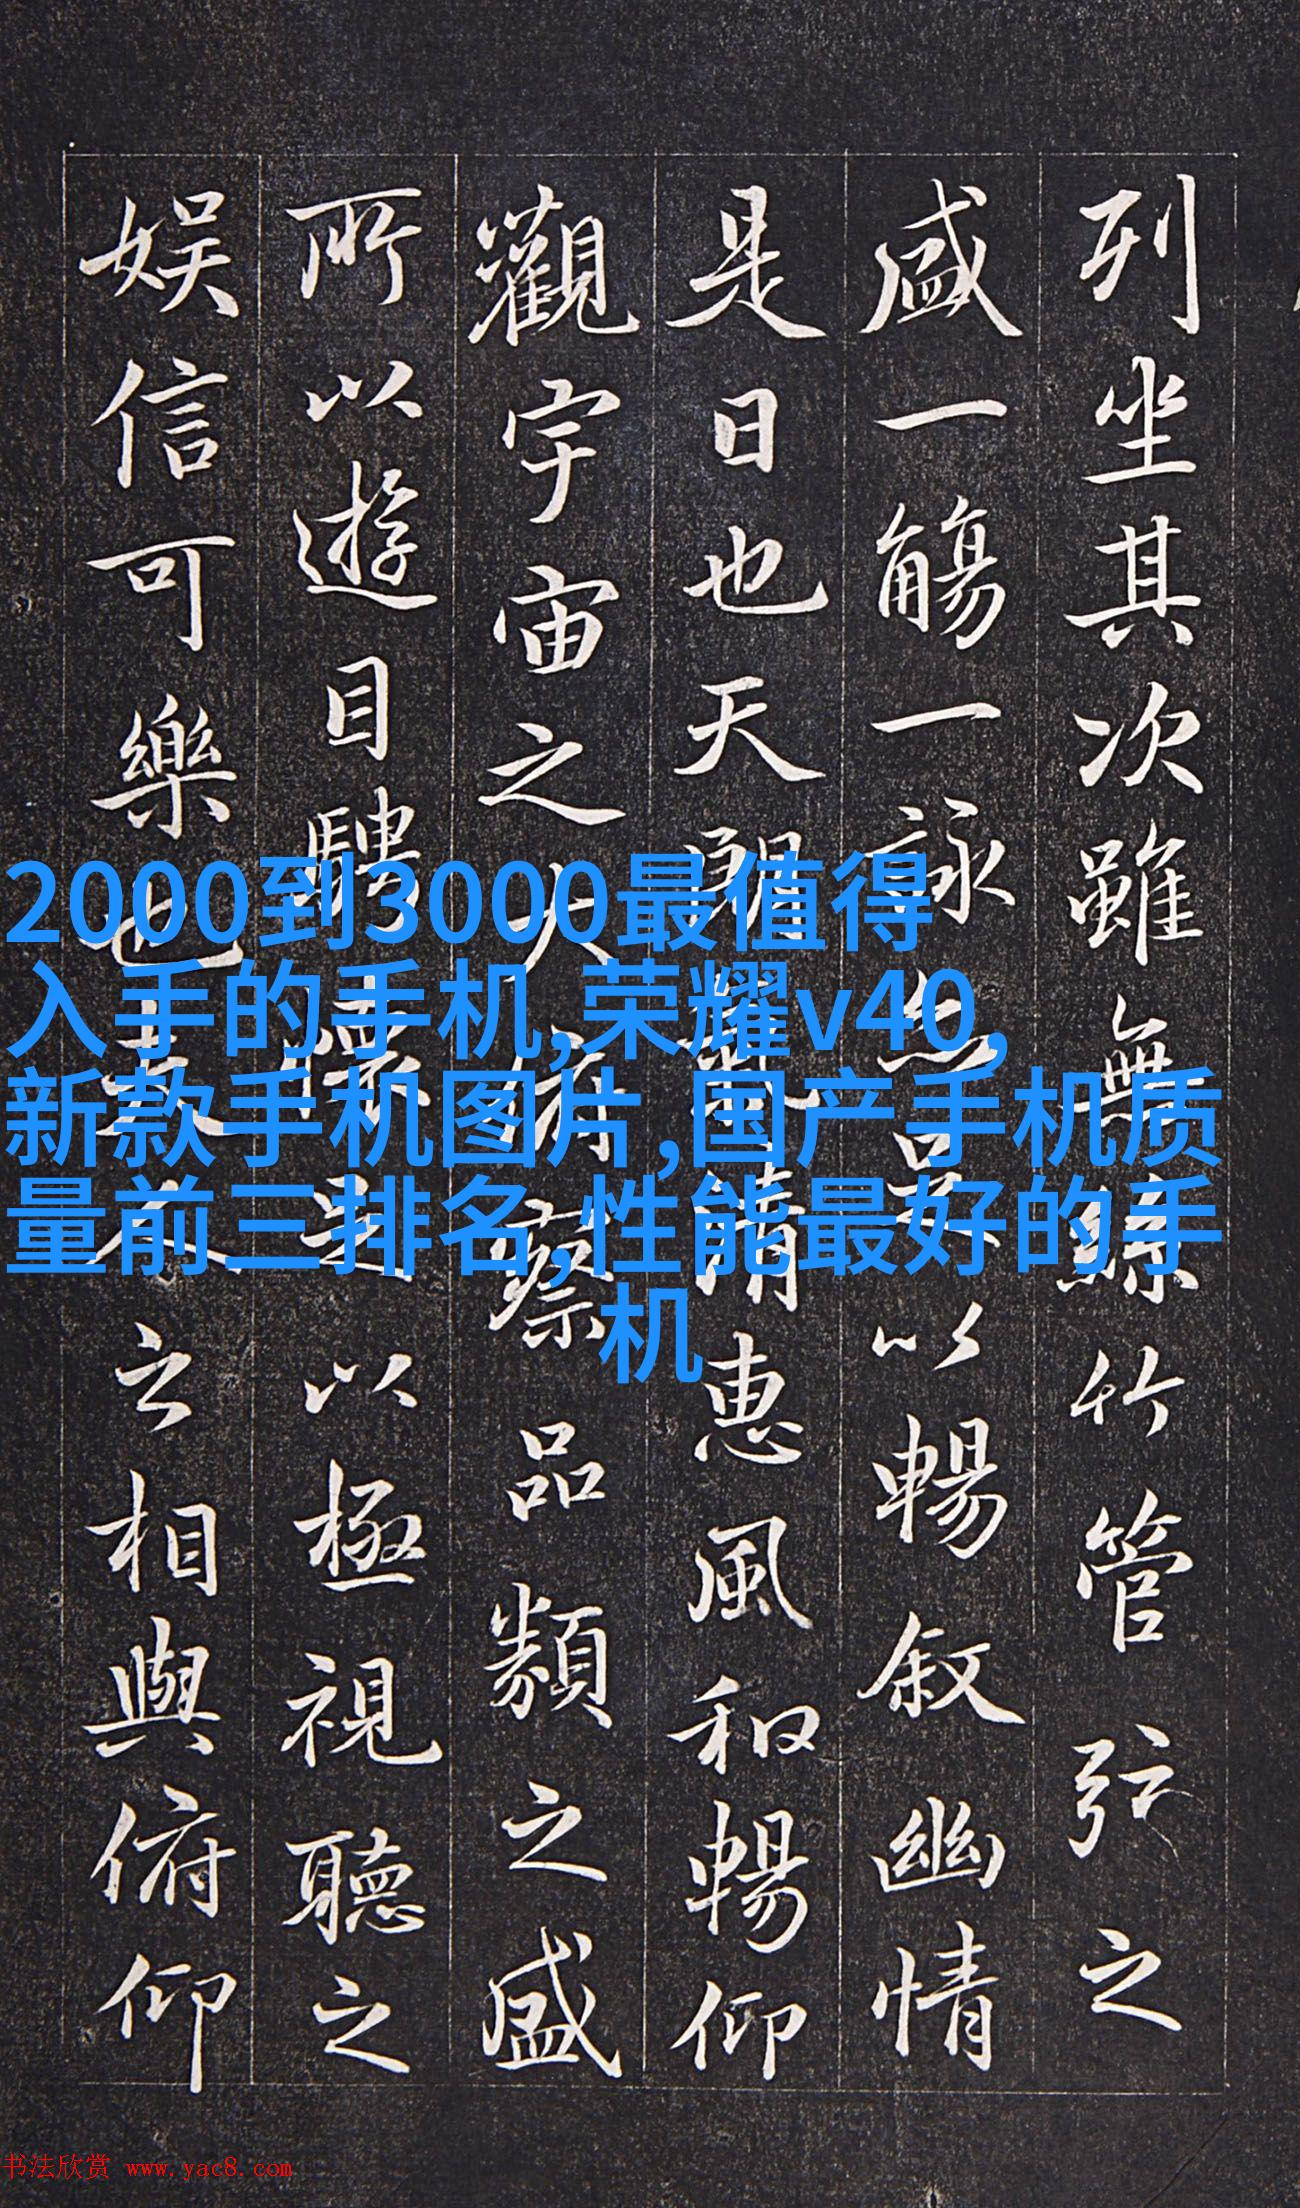 列坐其次雖無絲竹管弦之
盛一觴一詠亦足以暢敘幽情
是日也天朗氣清惠風和暢仰
觀宇宙之大俯察品類之盛
所以遊目騁懷足以極視聽之
娛信可樂也夫人之相與俯仰
2000到3000最值得
入手的手机,荣耀v40,
新款手机图片,国产手机质
量前三排名,性能最好的手
机
书法欣赏 www.yac8.com